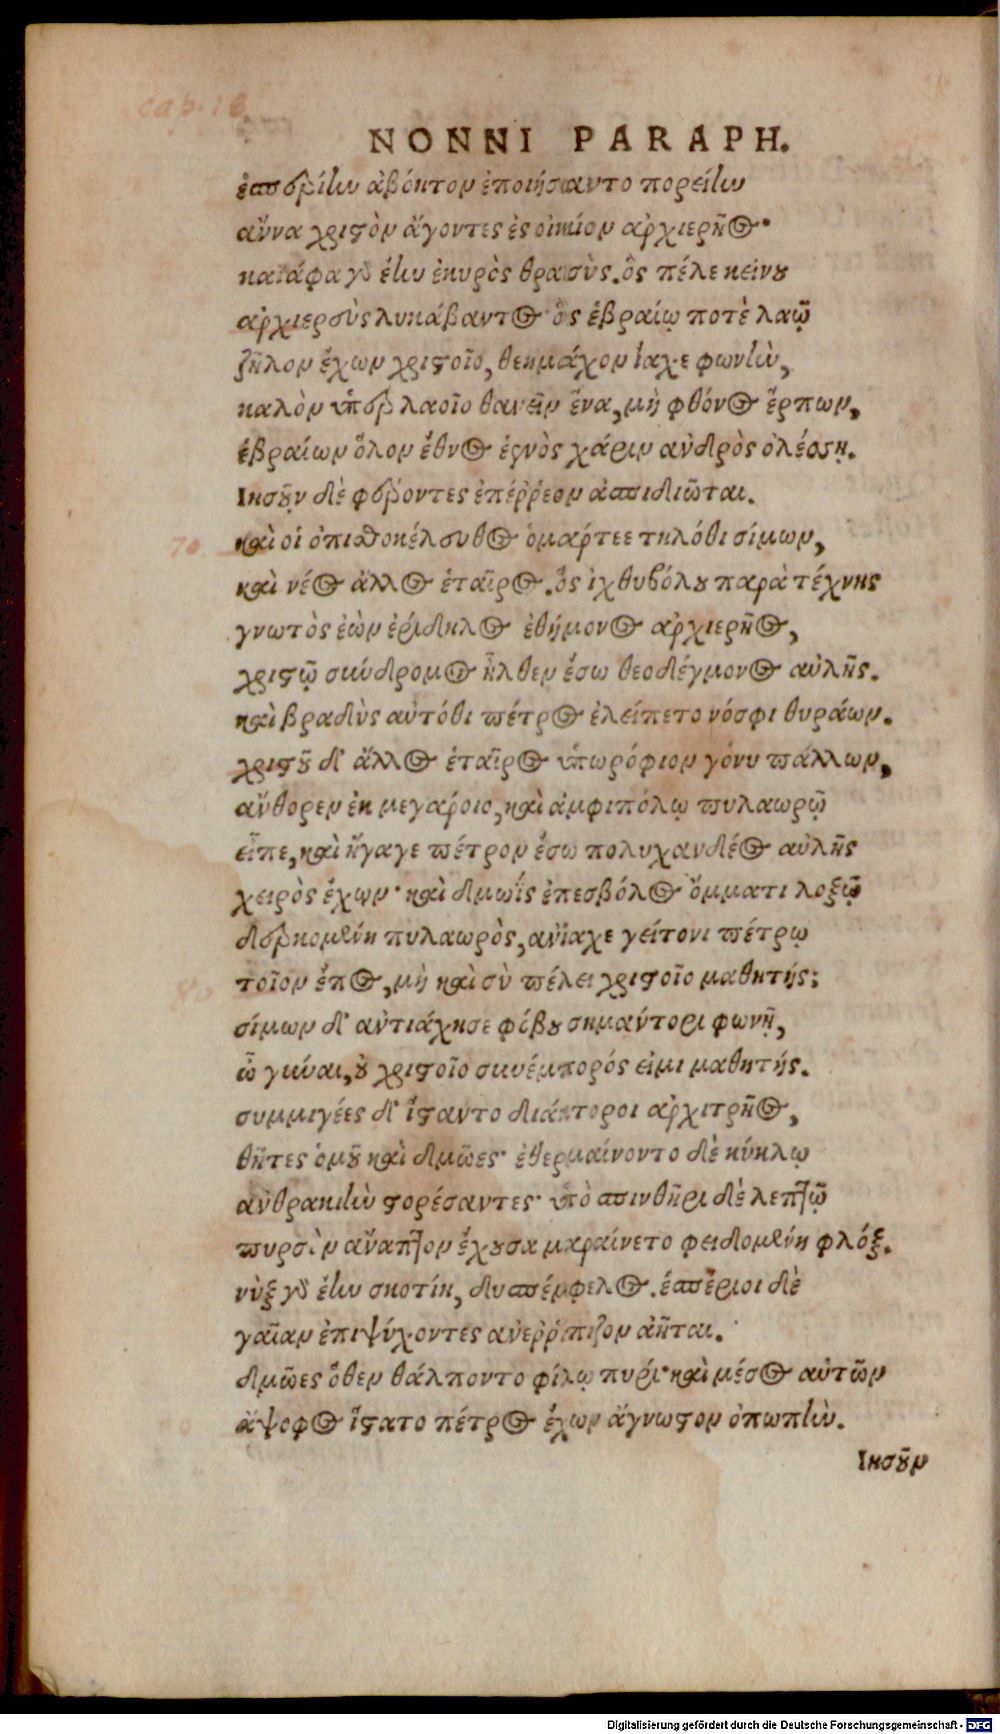 cap. 18
NONNI PARAPH.
ἑσπερίην ἀβόητον ἐποιήσαντο πορείην
ἄννα χριστὸν ἄγοντες ἐς οἰκίον ἀρχιερῆος·
καϊάφα γὰρ ἔην ἑκυρὸς θρασὺς. ὃς πέλε κείνου
ἀρχιερεὺς λυκάβαντος ὃς ἑβραίῳ ποτὲ λαῷ
ζῆλον ἔχων χριστοῖο, θεημάχον ἴαχε φωνὴν,
καλὸν ὑπὲρ λαοῖο θανεῖν ἕνα, μὴ φθόνος ἕρπων,
ἑβραίων ὅλον ἔθνος ἑνὸς χάριν ἀνδρὸς ὀλέσσῃ.
Ιησοῦν δὲ φέροντες ἐπέῤῥεον ἀσπιδιῶται.
70 καὶ οἱ ὀπισθοκέλευθος ὁμάρτεε τηλόθι σίμων,
καὶ νέος ἄλλος ἑταῖρος. ὃς ἰχθυβόλου παρὰ τέχνης
γνωτὸς ἐὼν ἐρίδηλος ἐθήμονος ἀρχιερῆος,
χριστῷ σύνδρομος ἦλθεν ἔσω θεοδέγμονος αὐλῆς.
καὶ βραδὺς αὐτόθι πέτρος ἐλείπετο νόσφι θυράων.
χριστοῦ δ' ἄλλος ἑταῖρος ὑπωρόφιον γόνυ πάλλων,
ἄνθορεν ἐκ μεγάροιο, καὶ ἀμφιπόλῳ πυλαωρῷ
εἶπε, καὶ ἤγαγε πέτρον ἔσω πολυχανδέος αὐλῆς
χειρὸς ἔχων· καὶ δμωῒς ἐπεσβόλος ὄμματι λοξῷ
δερκομένη πυλαωρὸς, ἀνίαχε γείτονι πέτρῳ
τοῖον ἔπος, μὴ καὶ σὺ πέλει χριστοῖο μαθητής;
σίμων δ' ἀντιάχησε φόβου σημάντορι φωνῇ,
ὦ γύναι, οὐ χριστοῖο συνέμπορός εἰμι μαθητής.
συμμιγέες δ' ἵσταντο διάκτοροι ἀρχιτρῆος,
θῆτες ὁμοῦ καὶ δμῶες· ἐθερμαίνοντο δὲ κύκλῳ
ἀνθρακιὴν στορέσαντες· ὑπὸ σπινθῆρι δὲ λεπτῷ
πυρσὸν ἄναπτον ἔχουσα μαραίνετο φειδομένη φλόξ.
νὺξ γὰρ ἔην σκοτίη, δυσπέμφελος. ἑσπέριοι δὲ
γαῖαν ἐπιψύχοντες ἀνεῤῥίπιζον ἀῆται.
δμῶες ὅθεν θάλποντο φίλῳ πυρί· καὶ μέσος αὐτῶν
ἄψοφος ἵστατο πέτρος ἔχων ἄγνωστον ὀπωπὴν.
Ιησοῦν
Digitalisierung gefördert durch die Deutsche Forschungsgemeinschaft - DFG